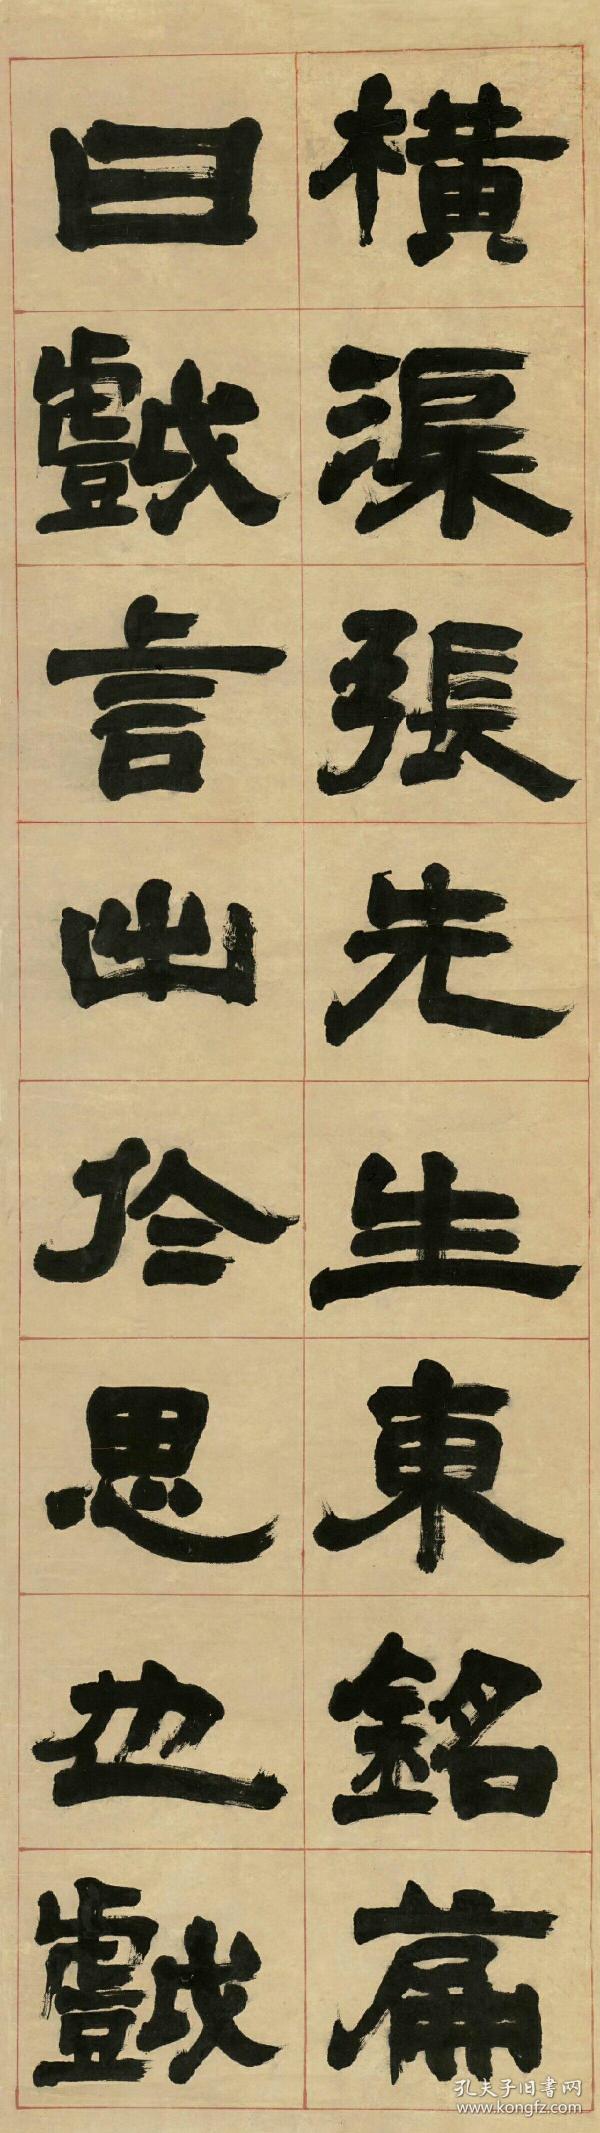 橫渠張先生東銘篇
曰戲言出於思也戲
孔夫子旧書网
www.kongfz.com